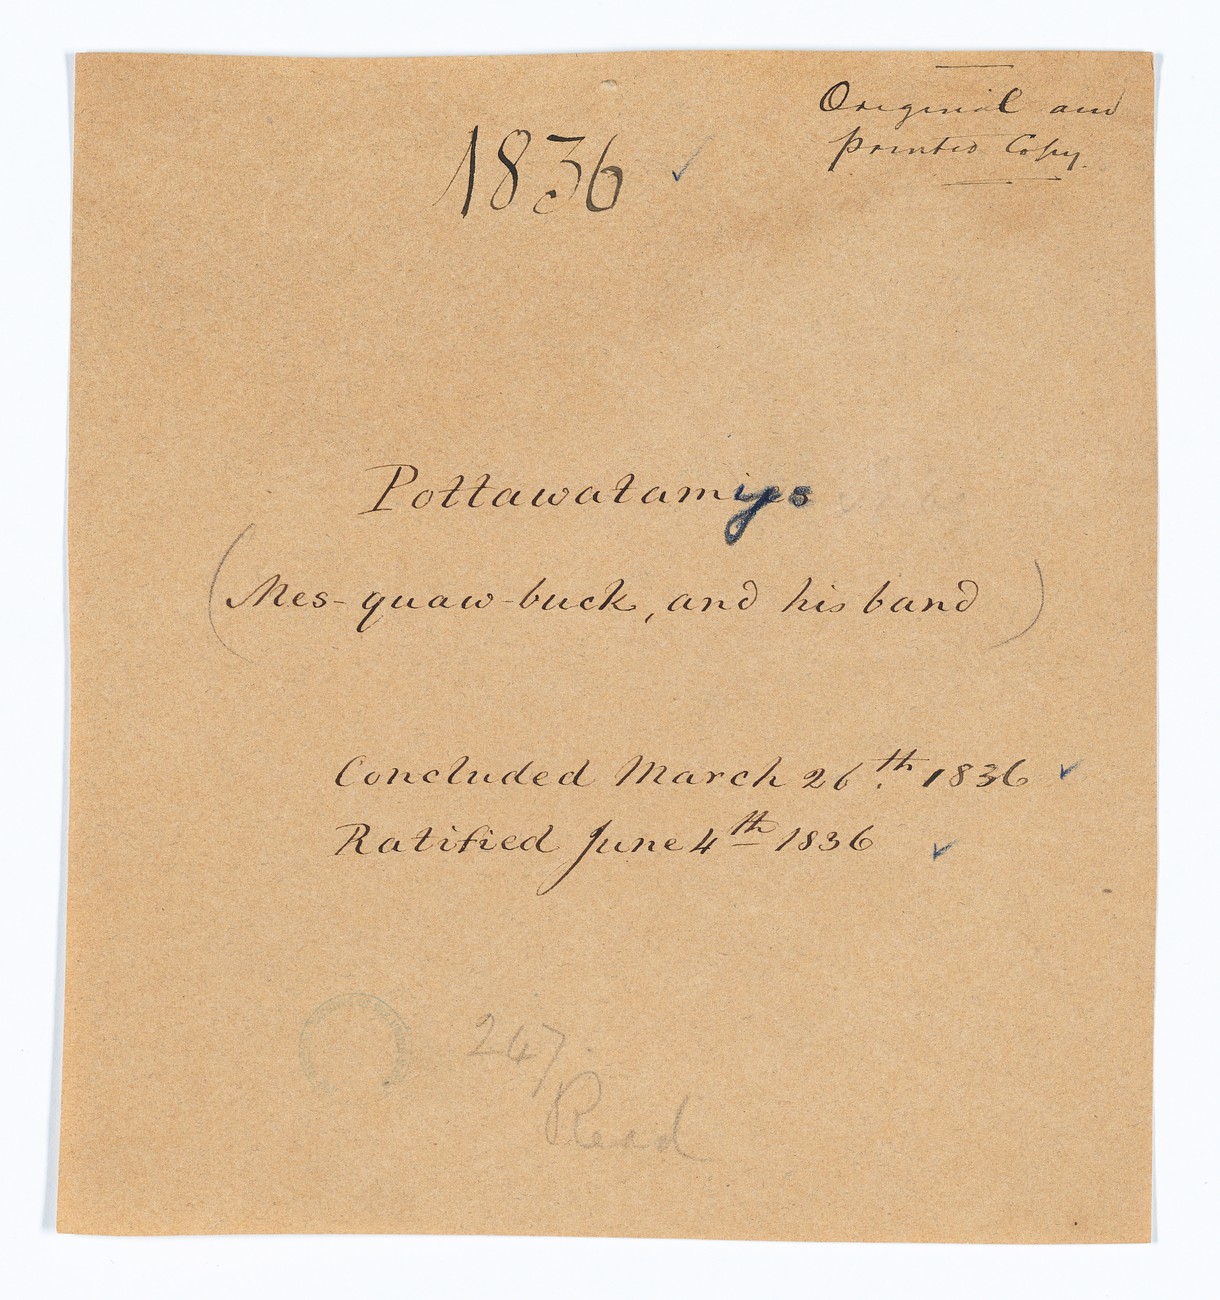 Original and
Printed Copy.
1836 ✓
Pottawatamies
(Mes-quaw-buck, and his band)
Concluded March 26th. 1836 ✓
Ratified June 4th 1836 ✓
247.
Read